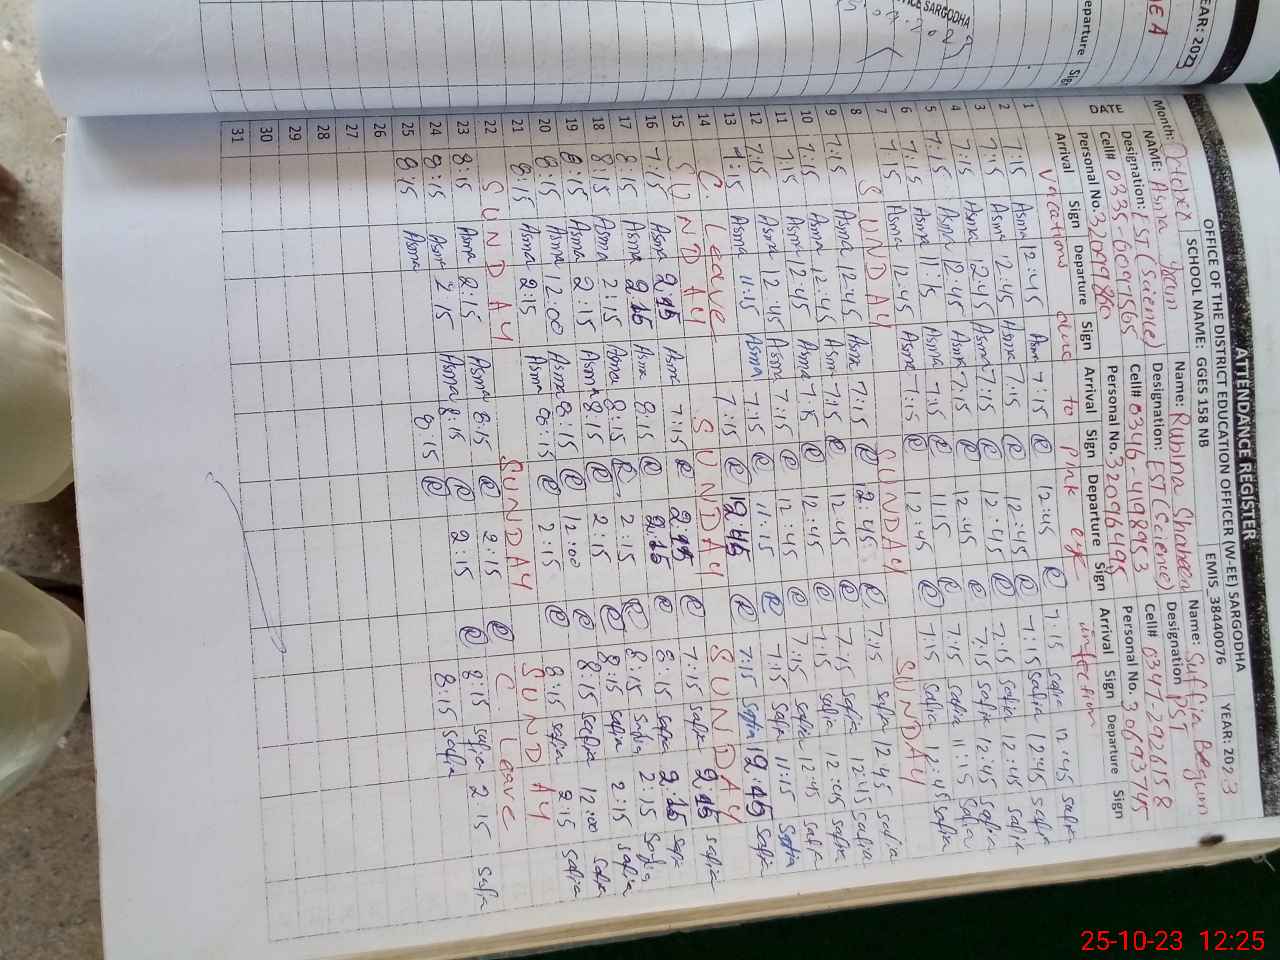 ATTENDANCE REGISTER
OFFICE OF THE DISTRICT EDUCATION OFFICER (W-EE) SARGODHA
Month: October SCHOOL NAME: GGES 158 NB EMIS 38440076 YEAR: 2023
NAME: Asma Name: Rubina Shaheen Name: Suffia Begum
Designation: EST (Science) Designation: EST (Science) Designation PST
Cell# 0335-6091565 Cell# 0346-4198953 Cell# 0347-2926158
Personal No. Personal No. 32096495 Personal No. 30693745
DATE Arrival Sign Departure Sign Arrival Sign Departure Sign Arrival Sign Departure Sign
1 Vacations due to Pink eye infection
2 7:15 Asma 12:45 Asma 7:15 12:45 7:15 safia 12:45 safia
3 7:15 Asma 12:45 Asma 7:15 12:45 7:15 safia 12:45 safia
4 7:15 Asma 12:45 Asma 7:15 12:45 7:15 safia 12:45 safia
5 7:15 Asma 12:45 Asma 7:15 12:45 7:15 safia 12:45 safia
6 7:15 Asma 11:15 Asma 7:15 11:15 7:15 safia 11:15 safia
7 7:15 Asma 12:45 Asma 7:15 12:45 7:15 safia 12:45 safia
8 SUNDAY SUNDAY SUNDAY
9 7:15 Asma 12:45 Asma 7:15 12:45 7:15 safia 12:45 safia
10 7:15 Asma 12:45 Asma 7:15 12:45 7:15 safia 12:45 safia
11 7:15 Asma 12:45 Asma 7:15 12:45 7:15 safia 12:45 safia
12 7:15 Asma 12:45 Asma 7:15 12:45 7:15 safia 12:45 safia
13 7:15 Asma 11:15 Asma 7:15 11:15 7:15 safia 11:15 safia
14 C. Leave 7:15 12:45 7:15 safia 12:45 safia
15 SUNDAY SUNDAY SUNDAY
16 7:15 Asma 2:15 Asma 7:15 2:15 7:15 safia 2:15 safia
17 8:15 Asma 2:15 Asma 8:15 2:15 8:15 safia 2:15 safia
18 8:15 Asma 2:15 Asma 8:15 2:15 8:15 safia 2:15 safia
19 8:15 Asma 2:15 Asma 8:15 2:15 8:15 safia 2:15 safia
20 8:15 Asma 12:00 Asma 8:15 12:00 8:15 safia 12:00 safia
21 8:15 Asma 2:15 Asma 8:15 2:15 8:15 safia 2:15 safia
22 SUNDAY SUNDAY SUNDAY
23 8:15 Asma 2:15 Asma 8:15 2:15 C. Leave
24 8:15 Asma 2:15 Asma 8:15 2:15 8:15 safia 2:15 safia
25 8:15 Asma 8:15 8:15 safia
26
27
28
29
30
31
EAR: 202
E A
eparture Sign
ICE SARGODHA
25-10-23 12:25